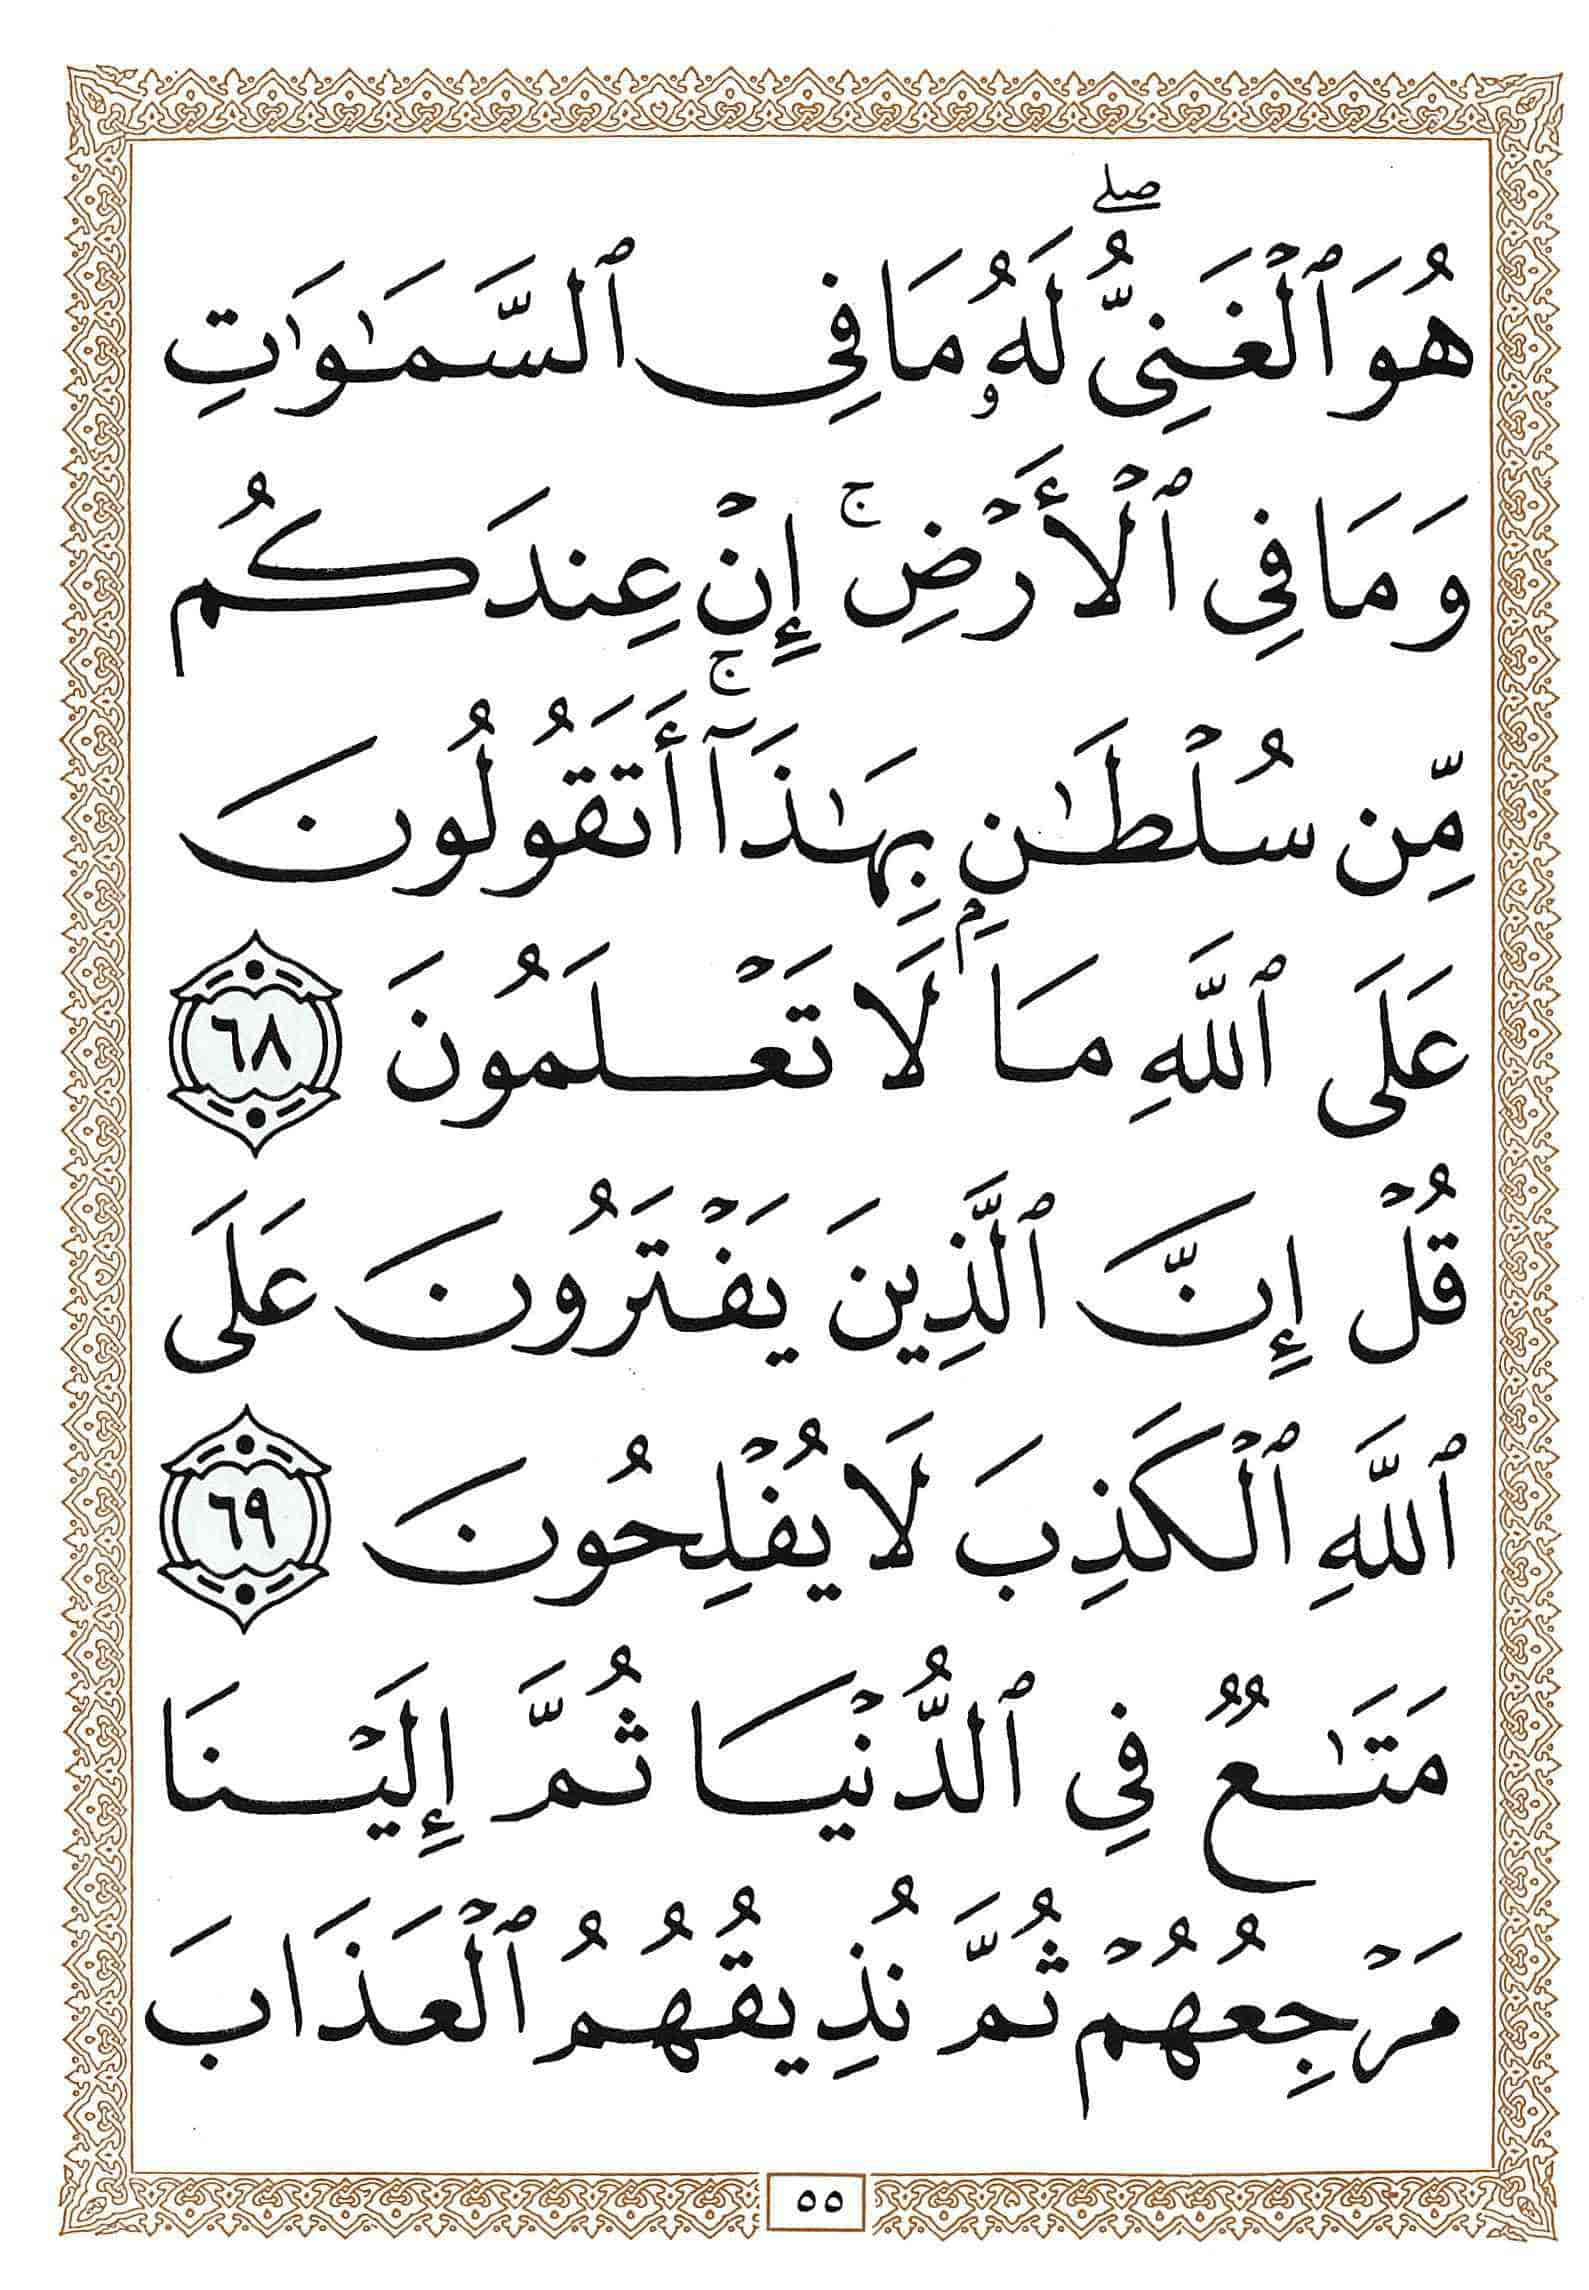 هُوَ ٱلۡغَنِىُّۖ لَهُۥ مَا فِى ٱلسَّمَٰوَٰتِ
وَمَا فِى ٱلۡأَرۡضِۚ إِنۡ عِندَكُم
مِّن سُلۡطَٰنِۭ بِهَٰذَآۚ أَتَقُولُونَ
عَلَى ٱللَّهِ مَا لَا تَعۡلَمُونَ ٦٨
قُلۡ إِنَّ ٱلَّذِينَ يَفۡتَرُونَ عَلَى
ٱللَّهِ ٱلۡكَذِبَ لَا يُفۡلِحُونَ ٦٩
مَتَٰعٌ فِى ٱلدُّنۡيَا ثُمَّ إِلَيۡنَا
مَرۡجِعُهُمۡ ثُمَّ نُذِيقُهُمُ ٱلۡعَذَابَ
٥٥